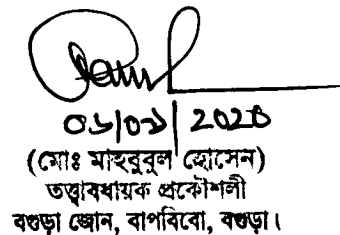 (মোঃ মাহবুবুল হোসেন)
তত্ত্বাবধায়ক প্রকৌশলী
বগুড়া জোন, বাপবিবো, বগুড়া।